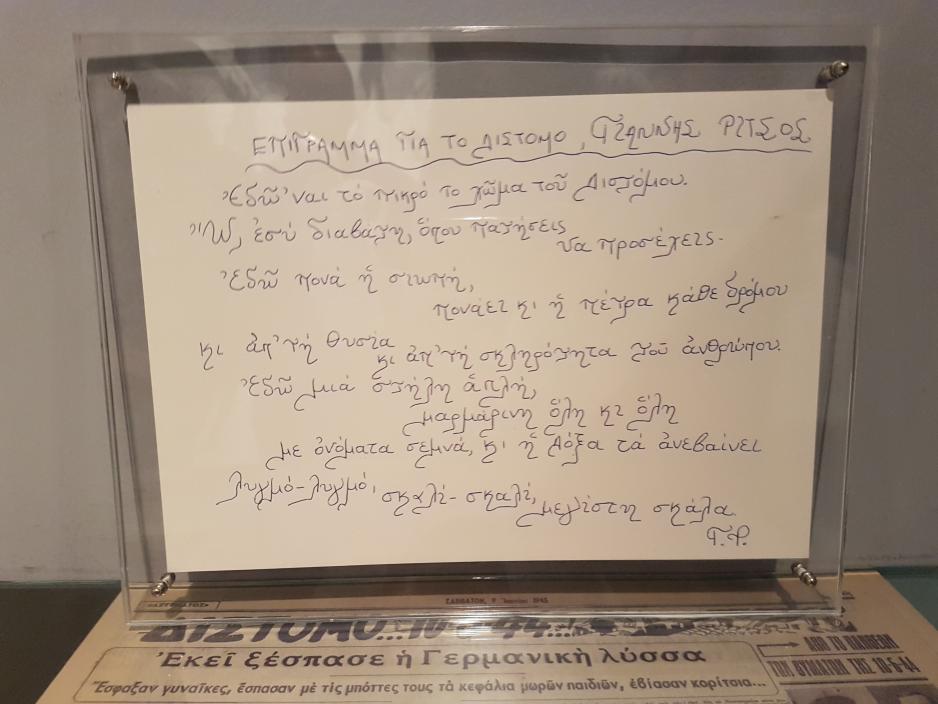 ΕΠΙΓΡΑΜΜΑ ΓΙΑ ΤΟ ΔΙΣΤΟΜΟ, ΓΙΑΝΝΗΣ ΡΙΤΣΟΣ
Ἐδῶ 'ναι τό πικρό το χῶμα τοῦ Διστόμου.
Ὦ, ἐσύ διαβάτη, ὅπου πατήσεις
να προσέχεις.
Ἐδῶ πονά ἡ σιωπή,
πονάει κι ἡ πέτρα κάθε δρόμου
κι ἀπ' τή θυσία
κι ἀπ' τή σκληρότητα τοῦ ἀνθρώπου.
Ἐδῶ μιά στήλη ἁπλή,
μαρμάρινη ὅλη κι ὅλη
με ὀνόματα σεμνά, κι ἡ Δόξα τά ἀνεβαίνει
λυγμό-λυγμό, σκαλί-σκαλί, μεγίστη σκάλα.
Γ.Ρ.
ΣΑΒΒΑΤΟΝ, 9 Ἰουνίου 1945
ΔΙΣΤΟΜΟ...10-6-44...
Ἐκεῖ ξέσπασε ἡ Γερμανικὴ λύσσα
Ἔσφαξαν γυναῖκες, ἔσπασαν μὲ τὶς μπόττες τους τὰ κεφάλια μωρῶν παιδιῶν, ἐβίασαν κορίτσια...
ΑΠΟ ΤΟ
ΤΩΝ ΘΥΜΑΤΩΝ ΤΗΣ 10-6-44